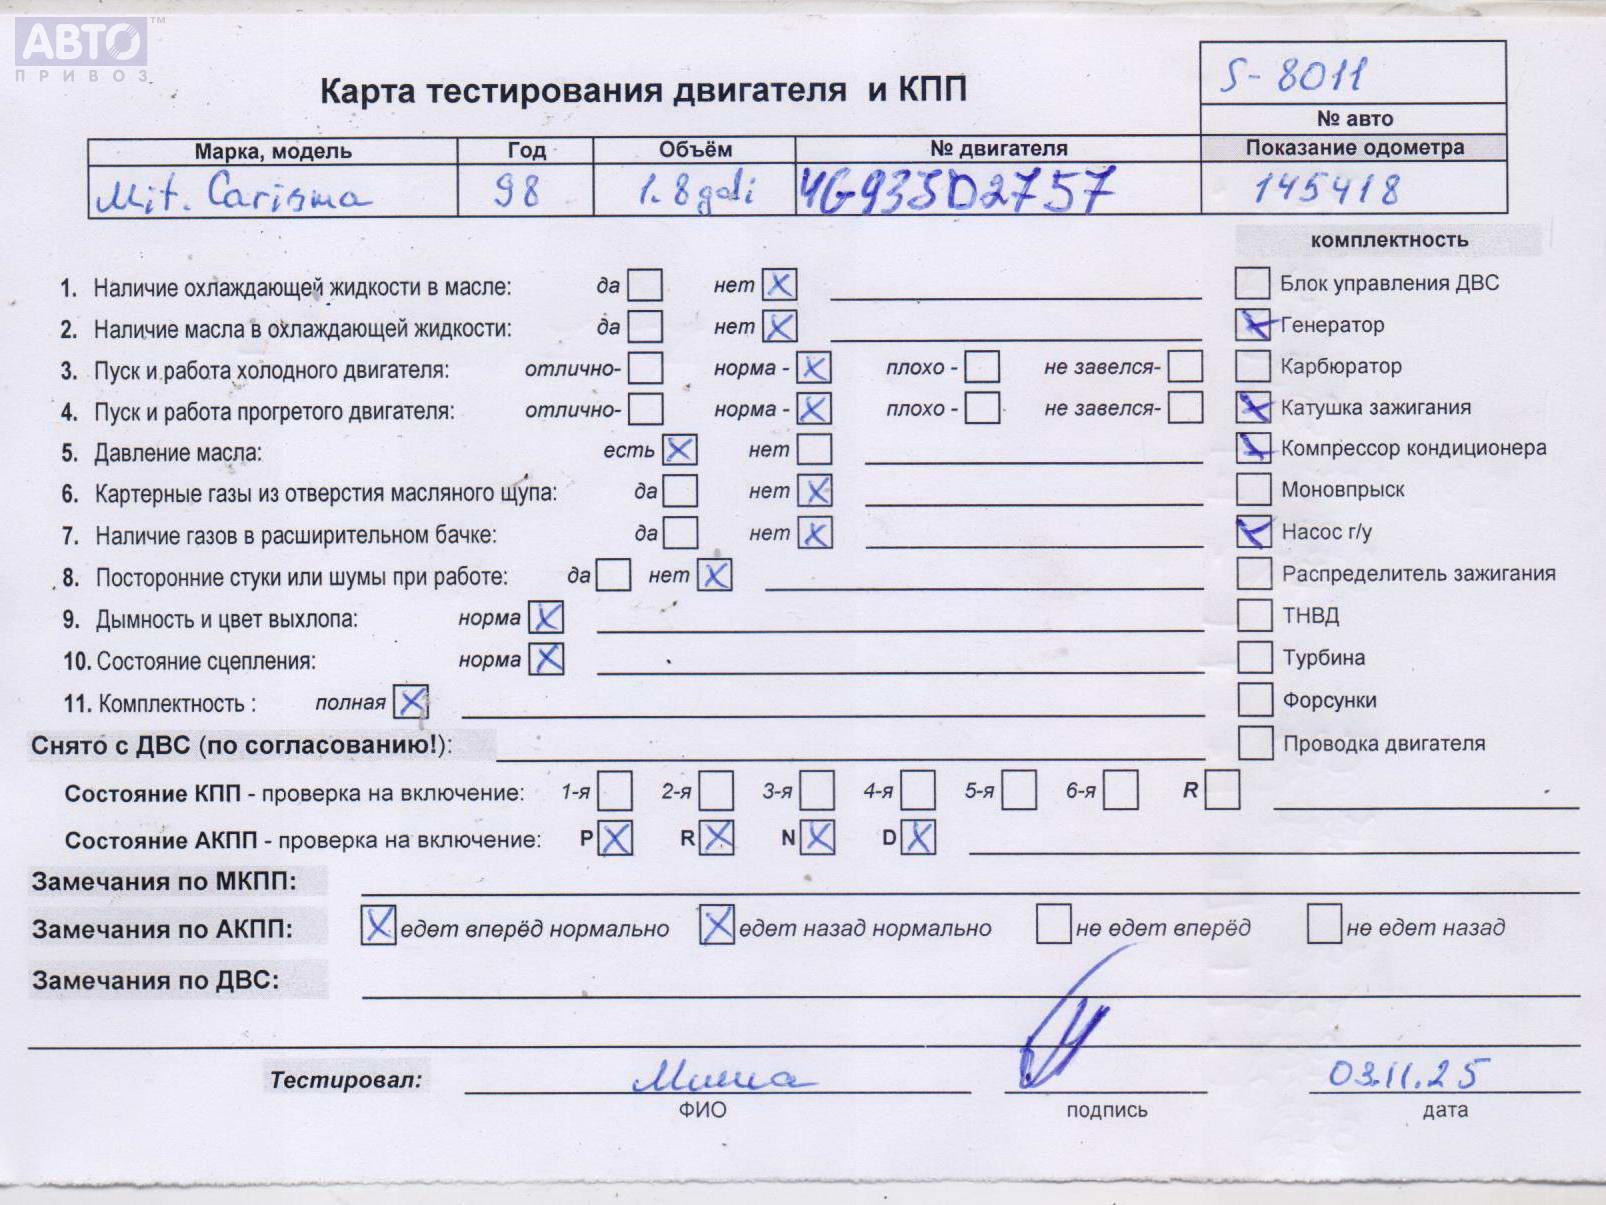 АВТО™
ПРИВОЗ
S-8011
Карта тестирования двигателя и КПП
№ авто
Марка, модель Год Объём № двигателя Показание одометра
Mit. Carisma 98 1.8 gdi 4G93SD2757 145418
комплектность
1. Наличие охлаждающей жидкости в масле: да нет X
Блок управления ДВС
2. Наличие масла в охлаждающей жидкости: да нет X
Генератор
3. Пуск и работа холодного двигателя: отлично- норма - X плохо - не завелся-
Карбюратор
4. Пуск и работа прогретого двигателя: отлично- норма - X плохо - не завелся-
Катушка зажигания
5. Давление масла: есть X нет
Компрессор кондиционера
6. Картерные газы из отверстия масляного щупа: да нет X
Моновпрыск
7. Наличие газов в расширительном бачке: да нет X
Насос г/у
8. Посторонние стуки или шумы при работе: да нет X
Распределитель зажигания
9. Дымность и цвет выхлопа: норма X
ТНВД
10. Состояние сцепления: норма X
Турбина
11. Комплектность : полная X
Форсунки
Снято с ДВС (по согласованию!):
Проводка двигателя
Состояние КПП - проверка на включение: 1-я 2-я 3-я 4-я 5-я 6-я R
Состояние АКПП - проверка на включение: P X R X N X D X
Замечания по МКПП:
Замечания по АКПП: X едет вперёд нормально X едет назад нормально не едет вперёд не едет назад
Замечания по ДВС:
Тестировал: Миша 03.11.25
ФИО подпись дата